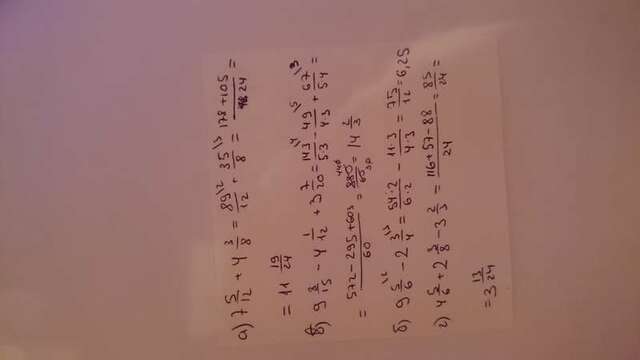 а) 7 5/12 + 4 3/8 = 89\2/12 + 35\3/8 = 178+105/24 =
= 11 19/24
б) 9 8/15 - 4 1/12 + 3 7/20 = 143\4/5·3 - 49\5/4·3 + 67\3/5·4 =
= 572-295+603/60 = 880/60 = 14 2/3
б) 9 5/6\2 - 2 3/4\3 = 54·2/6·2 - 11·3/4·3 = 75/12 = 6,25
г) 4 5/6 + 2 3/8 - 3 2/3 = 116+57-88/24 = 85/24 =
= 3 13/24